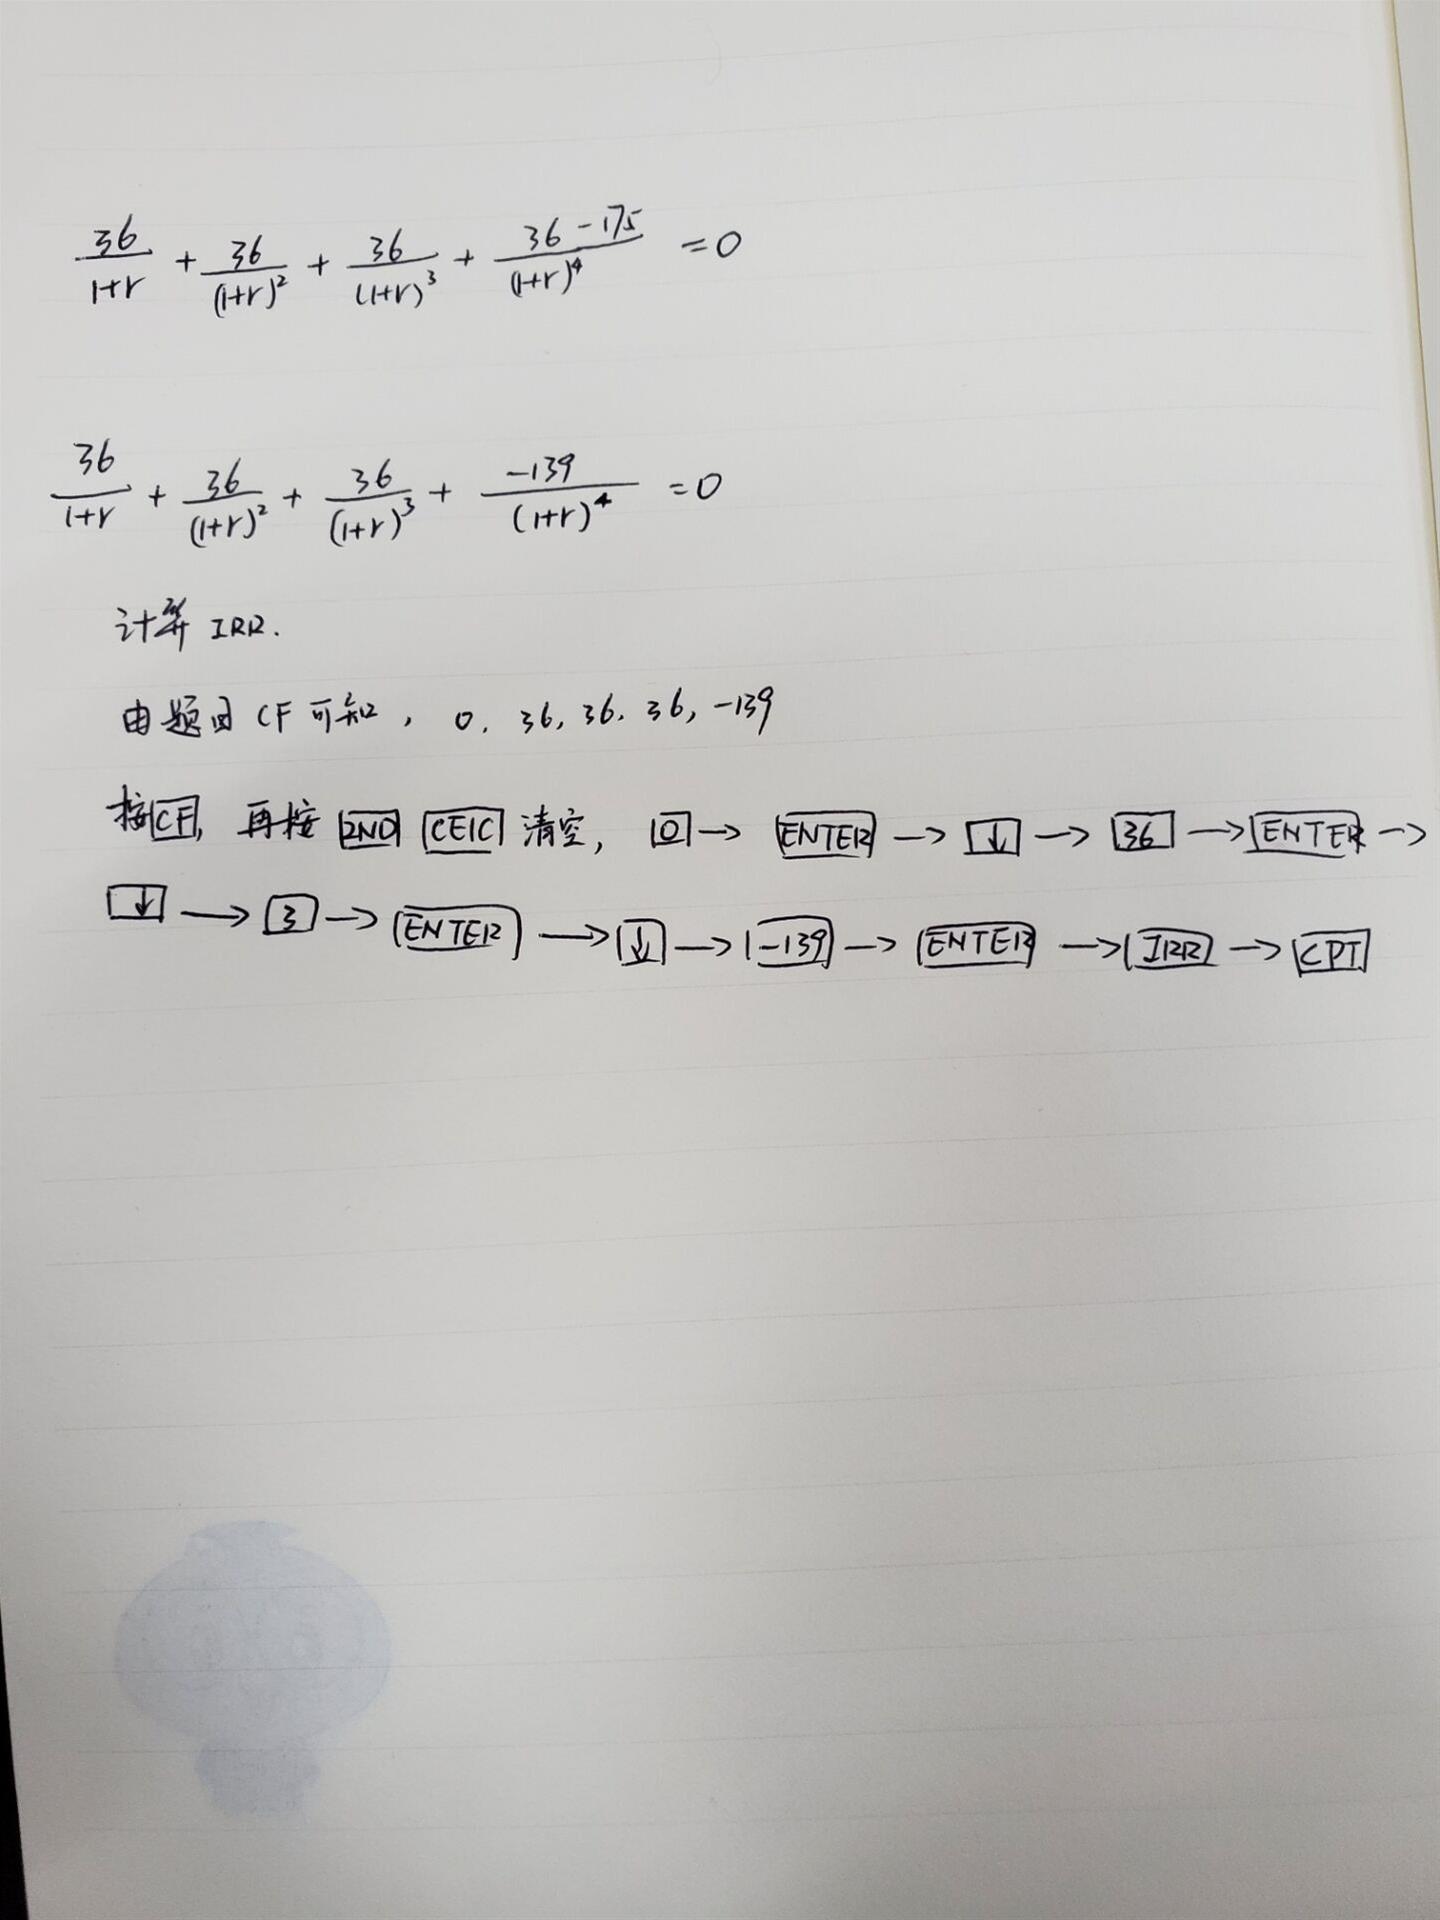 36/(1+r) + 36/(1+r)² + 36/(1+r)³ + (36-175)/(1+r)⁴ = 0
36/(1+r) + 36/(1+r)² + 36/(1+r)³ + -139/(1+r)⁴ = 0
计算 IRR.
由题目 CF 可知, 0, 36, 36, 36, -139
按CF, 再按 2ND CE|C 清空, 0 → ENTER → ↓ → 36 → ENTER →
↓ → 3 → ENTER → ↓ → -139 → ENTER → IRR → CPT